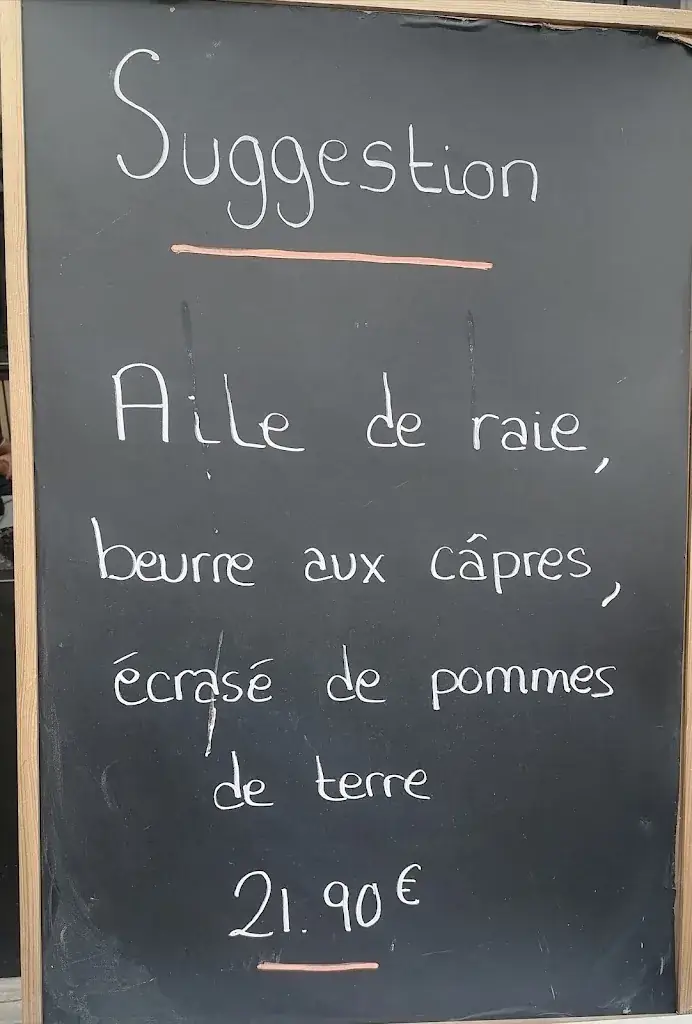 Suggestion
Aile de raie,
beurre aux câpres,
écrasé de pommes
de terre
21.90€